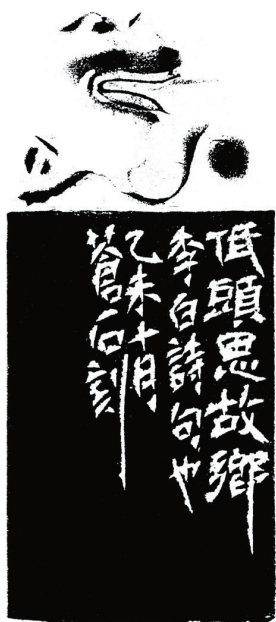 低頭思故鄉
李白詩句也
乙未十月
蒼石刻